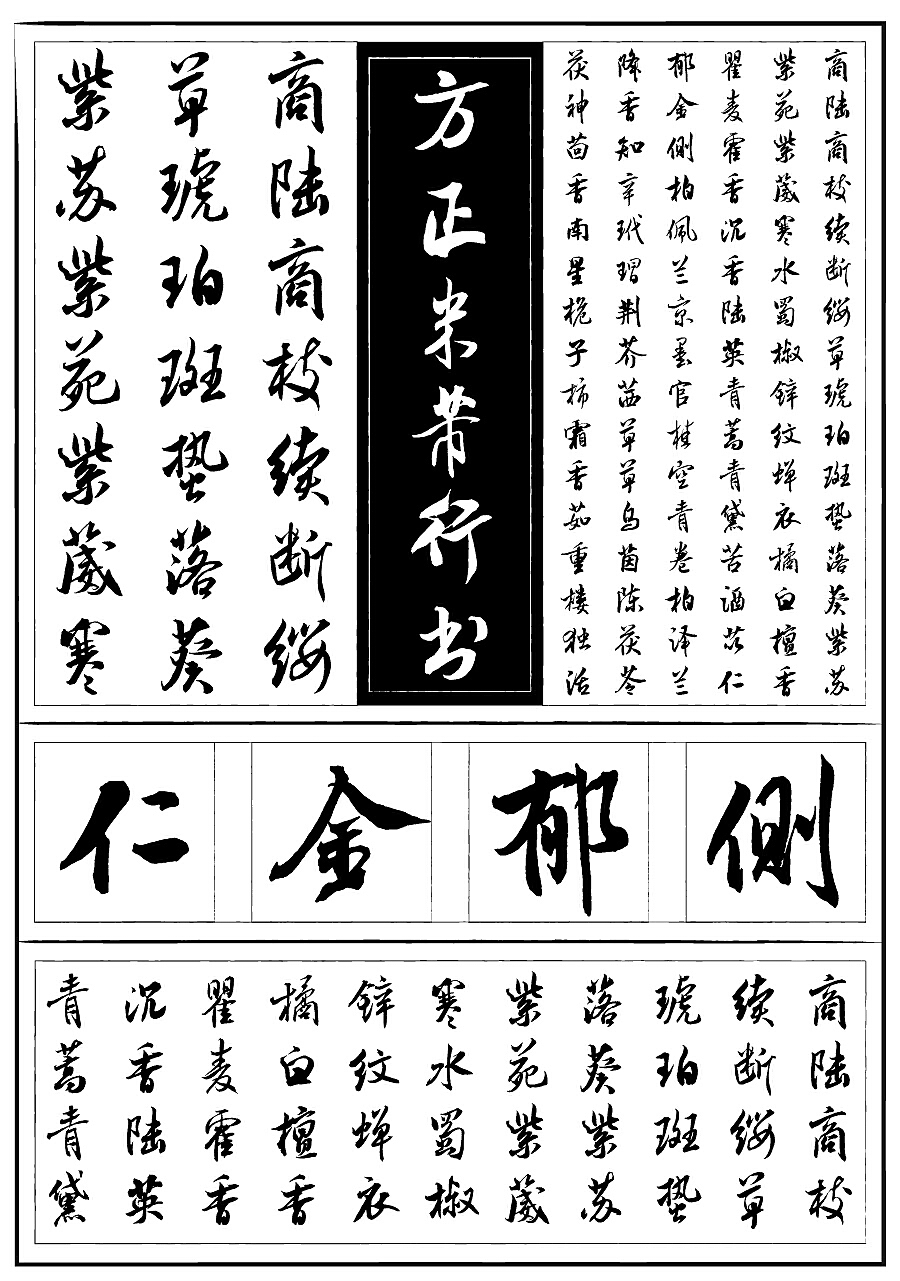 商陆商枝续断绶草琥珀斑蛰落葵紫苏
紫苑紫葳寒水蜀椒锌纹蝉衣橘白檀香
瞿麦霍香沉香陆英青蒿青黛苦酒苡仁
郁金侧柏佩兰京墨官桂空青卷柏泽兰
降香知辛玳瑁荆芥茜草草乌茵陈茯苓
茯神茴香南星桅子柿霜香茹重楼独活
方正米芾行书
商陆商枝续断绶
草琥珀斑蛰落葵
紫苏紫苑紫葳寒
侧
郁
金
仁
商陆商枝
续断绶草
琥珀斑蛰
落葵紫苏
紫苑紫葳
寒水蜀椒
锌纹蝉衣
橘白檀香
瞿麦霍香
沉香陆英
青蒿青黛